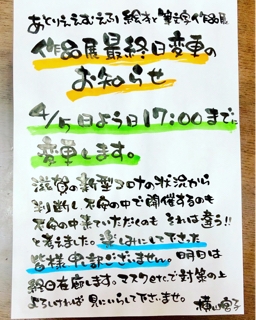 作品展最終日変更の
お知らせ
4/5日よう日17:00までに
変更します。
滋賀の新型コロナの状況から
判断し不安の中で開催するのも
不安の中来ていただくのも それは違う!!
と考えました。楽しみにして下さった
皆様申し訳ございません。明日は
終日在廊します。マスクetc.で対策の上
よろしければ 見にいらして下さいませ。